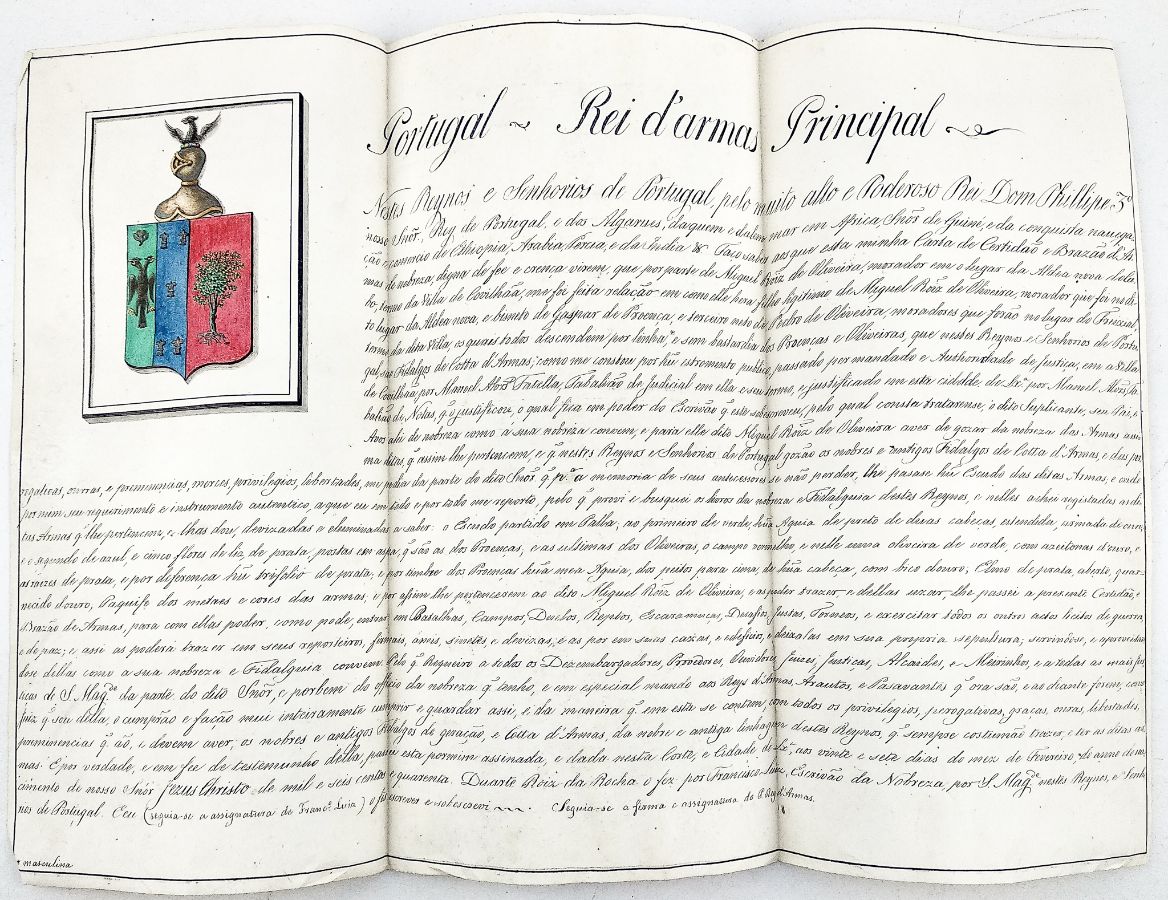 Portugal ~ Rei d'armas Principal
Nestes Reynos e Senhorios de Portugal, pelo muito alto e Poderoso Rei Dom Phillipe 3º
nosso Snõr, Rey de Portugal, e dos Algarues, daquem e dalem mar em Africa, Snõr de Guiné, e da conquista, navega-
ção, comercio de Ethiopia, Arabia, Percia, e da India &. Faço saber aos que esta minha Carta de Certidão e Brazão d'Ar-
mas de nobreza, digna de fee e crença virem, que por parte de Miguel Roiz de Oliveira, morador em o lugar da Aldea nova do
termo da Villa de Covilhãa, me foi feita relação em como elle hera filho legitimo de Miguel Roiz de Oliveira, morador que foi no di-
to lugar da Aldea nova, e bisneto de Gaspar de Proença, e terceiro neto de Pedro de Oliveira, moradores que forão no lugar do
termo da dita Villa, os quais todos descendem por linha*, e sem bastardia dos Proenças e Oliveiras, que nestes Reynos e Senhorios de Portu-
gal, são Fidalgos de Cotta d'Armas; como me constou por hũ estromento publico, passado por mandado e Authoridade de Justiça, em a Villa
de Covilhãa, por Manuel Tabalião do Judicial em ella e seu termo, e justificado em esta cidade de Lxª por Manuel Ta-
balião de Notas, q̃ o justificou, o qual fica em poder do Escrivão q̃ este sobescreveu, pelo qual consta tratarense, o dito Suplicante, seu Pai, e
Avos á lei de nobreza como á sua nobreza convem, e para elle dito Miguel Roiz de Oliveira aver de gozar da nobreza das Armas aci-
ma ditas, q̃ assim lhe pertencem, e q̃ nestes Reynos e Senhorios de Portugal gozão os nobres e antigos Fidalgos de Cotta d'Armas, e das pre-
rogativas, onrras, e preminencias, merces, privilegios, liberdades, me pedia da parte do dito Snõr q̃ pª a memoria de seus antecessores se não perder, lhe pasase hũ Escudo das ditas Armas, e visto
por mim seu requerimento e instrumento autentico, a que eu em tudo e por todo me reporto, pelo q̃ provi e busquei os livros da nobreza e Fidalguia destes Reynos, e nelles achei registadas as di-
tas Armas q̃ lhe pertencem, e lhas dou, devizadas e eluminadas a saber: o Escudo partido em Palla, ao primeiro de verde, hũa Aguia de preto de duas cabeças estendida, armada de
e o segundo de azul, e cinco flores de liz, de prata, postas em aspa, q̃ são as dos Proenças, e as ultimas dos Oliveiras, o campo vermelho, e nelle uma oliveira de verde, com azeitonas d'ouro, e
as raizes de prata, e por diferença hũ trifolio de prata; e por timbre dos Proenças hũa mea Aguia, dos peitos para cima, de hũa cabeça, com bico douro; Elmo de prata, aberto, guar-
necido douro, Paquife dos metaes e cores das armas, e por assim lhe pertencerem ao dito Miguel Roiz de Oliveira, e as poder trazer, e dellas uzar, lhe passei a presente Certidão, e
Brazão de Armas, para com ellas poder, como pode, entrar em Batalhas, Campos, Duelos, Reptos, Escaramuças, Desafios, Justas, Torneos, e exercitar todos os outros actos licitos de guerra
e de paz; e assi as poderá trazer em seus reporteiros, firmais, aneis, sinetes e devizas, e as por em suas cazas, e edeficios, e deixalas em sua propria sepultura; servindose, e aproveitan-
dose dellas como a sua nobreza e Fidalguia convem. Pelo q̃ Requeiro a todos os Dezembargadores, Provedores, Ouvidores, Juizes, Justiças, Alcaides, e Meirinhos, e a todas as mais jus-
tiças de S. Magde. da parte do dito Snõr, e por bem do officio da nobreza q̃ tenho, e em especial mando aos Reys d'Armas, Arautos, e Pasavantes q̃ ora são, e ao diante forem, como
juiz q̃ sou della, o cumprão e fação mui inteiramente cumprir e guardar assi, e da maneira q̃ em esta se contem, com todos os privilegios, perogativas, graças, onras, liberdades,
preminencias q̃ ão, e devem aver, os nobres e antigos Fidalgos de geração, e Cotta d'Armas, da nobre e antiga linhagem destes Reynos, q̃ sempre costumão trazer, e ter as ditas ar-
mas. E por verdade, e em fee de testemunho della, passei esta por mim assinada, e dada nesta Corte, e Cidade de Lxª aos vinte e sete dias do mez de Fevereiro, do anno do nas-
cimento de nosso Snõr Jezus Christo de mil e seis centos e quarenta. Duarte Roiz da Rocha o fez por Francisco Luiz, Escrivão da Nobreza, por S. Magde. nestes Reynos, e Senho-
rios de Portugal. E eu (seguia-se a assignatura de Francº. Luiz) o fiz escrever e sobescrevi ~~~. Seguia-se a firma e assignatura do P. Rey d'Armas.
* masculina